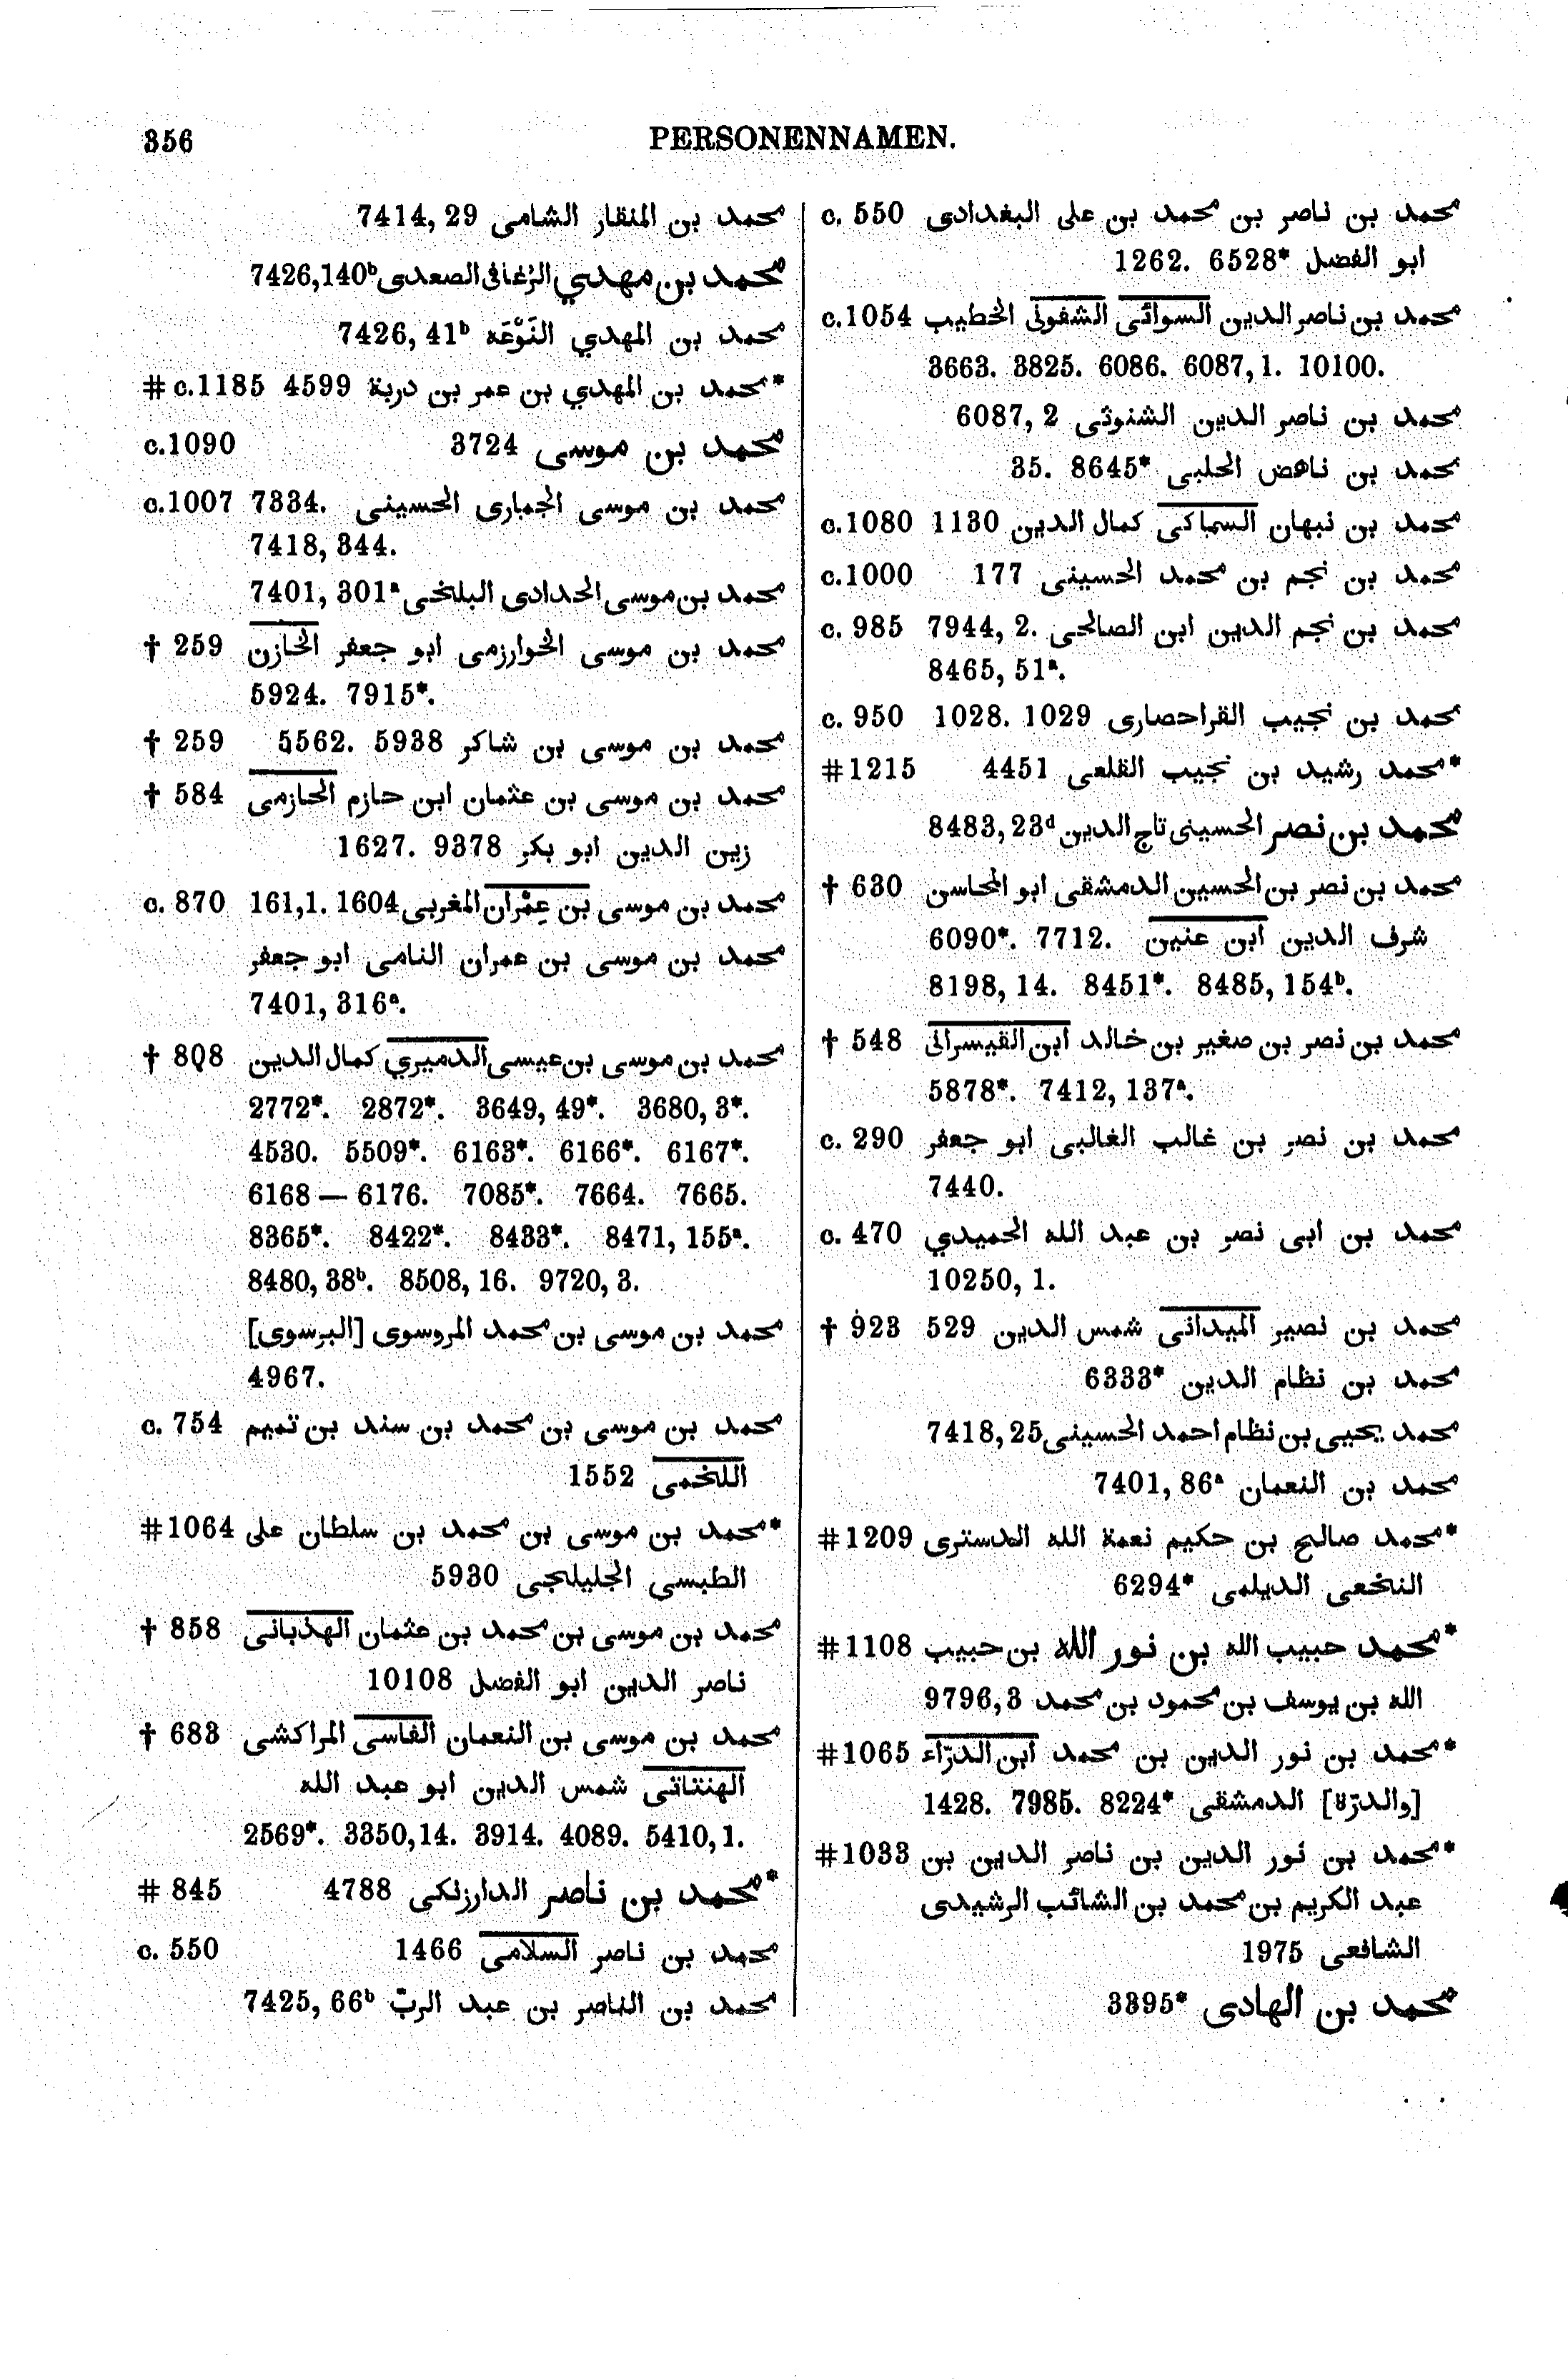 356
PERSONENNAMEN.
محمد بن المنقار الشامى 7414, 29
محمد بن مهدي الزغافى الصعدى 7426,140ᵇ
محمد بن المهدي النَوْعَه 7426, 41ᵇ
*محمد بن المهدي بن عمر بن دربة 4599 #c.1185
محمد بن موسى 3724 c.1090
محمد بن موسى الجمبارى الحسينى 7334. c.1007
7418, 344.
محمد بن موسى الحدادى البلخى 7401, 301ᵃ
محمد بن موسى الخوارزمى ابو جعفر الخازن † 259
5924. 7915*.
محمد بن موسى بن شاكر 5562. 5938 † 259
محمد بن موسى بن عثمان ابن حازم الحازمى † 584
زين الدين ابو بكر 1627. 9378
محمد بن موسى بن عِمْران المغربى 161,1. 1604 c. 870
محمد بن موسى بن عمران النامى ابو جعفر
7401, 316ᵃ.
محمد بن موسى بن عيسى الدميري كمال الدين † 808
2772*. 2872*. 3649, 49*. 3680, 3*.
4530. 5509*. 6163*. 6166*. 6167*.
6168 — 6176. 7085*. 7664. 7665.
8365*. 8422*. 8433*. 8471, 155ᵃ.
8480, 38ᵇ. 8508, 16. 9720, 3.
محمد بن موسى بن محمد المروسوى [البرسوى]
4967.
محمد بن موسى بن محمد بن سند بن تميم c. 754
اللخمى 1552
*محمد بن موسى بن محمد بن سلطان على #1064
الطبسى الجليلجى 5930
محمد بن موسى بن محمد بن عثمان الهذبانى † 858
ناصر الدين ابو الفضل 10108
محمد بن موسى بن النعمان الفاسى المراكشى † 683
الهنتانى شمس الدين ابو عبد الله
2569*. 3350,14. 3914. 4089. 5410,1.
*محمد بن ناصر الدارزنكى 4788 # 845
محمد بن ناصر السلامى 1466 c. 550
محمد بن الناصر بن عبد الربّ 7425, 66ᵇ
محمد بن ناصر بن محمد بن على البغدادى c. 550
ابو الفضل 1262. 6528*
محمد بن ناصر الدين السوائى الشفونى الخطيب c.1054
3663. 3825. 6086. 6087, 1. 10100.
محمد بن ناصر الدين الشنوثى 6087, 2
محمد بن ناهض الحلبى 35. 8645*
محمد بن نبهان السماكى كمال الدين 1130 c.1080
محمد بن نجم بن محمد الحسينى 177 c.1000
محمد بن نجم الدين ابن الصالحى 7944, 2. c. 985
8465, 51ᵃ.
محمد بن نجيب القراحصارى 1028. 1029 c. 950
*محمد رشيد بن نجيب القلعى 4451 #1215
محمد بن نصر الحسينى تاج الدين 8483, 23ᵈ
محمد بن نصر بن الحسين الدمشقى ابو المحاسن † 630
شرف الدين ابن عنين 6090*. 7712.
8198, 14. 8451*. 8485, 154ᵇ.
محمد بن نصر بن صغير بن خالد ابن القيسرانى † 548
5878*. 7412, 137ᵃ.
محمد بن نصر بن غالب الغالبى ابو جعفر c. 290
7440.
محمد بن ابى نصر بن عبد الله الحميدي c. 470
10250, 1.
محمد بن نصير الميدانى شمس الدين 529 † 923
محمد بن نظام الدين 6333*
محمد يحيى بن نظام احمد الحسينى 7418, 25
محمد بن النعمان 7401, 86ᵃ
*محمد صالح بن حكيم نعمة الله الدسترى #1209
النخعى الديلمى 6294*
*محمد حبيب الله بن نور الله بن حبيب #1108
الله بن يوسف بن محمود بن محمد 9796,3
*محمد بن نور الدين بن محمد ابن الدرّاء #1065
[والدرّة] الدمشقى 1428. 7985. 8224*
*محمد بن نور الدين بن ناصر الدين بن #1033
عبد الكريم بن محمد بن الشائب الرشيدى
الشافعى 1975
محمد بن الهادى 3895*